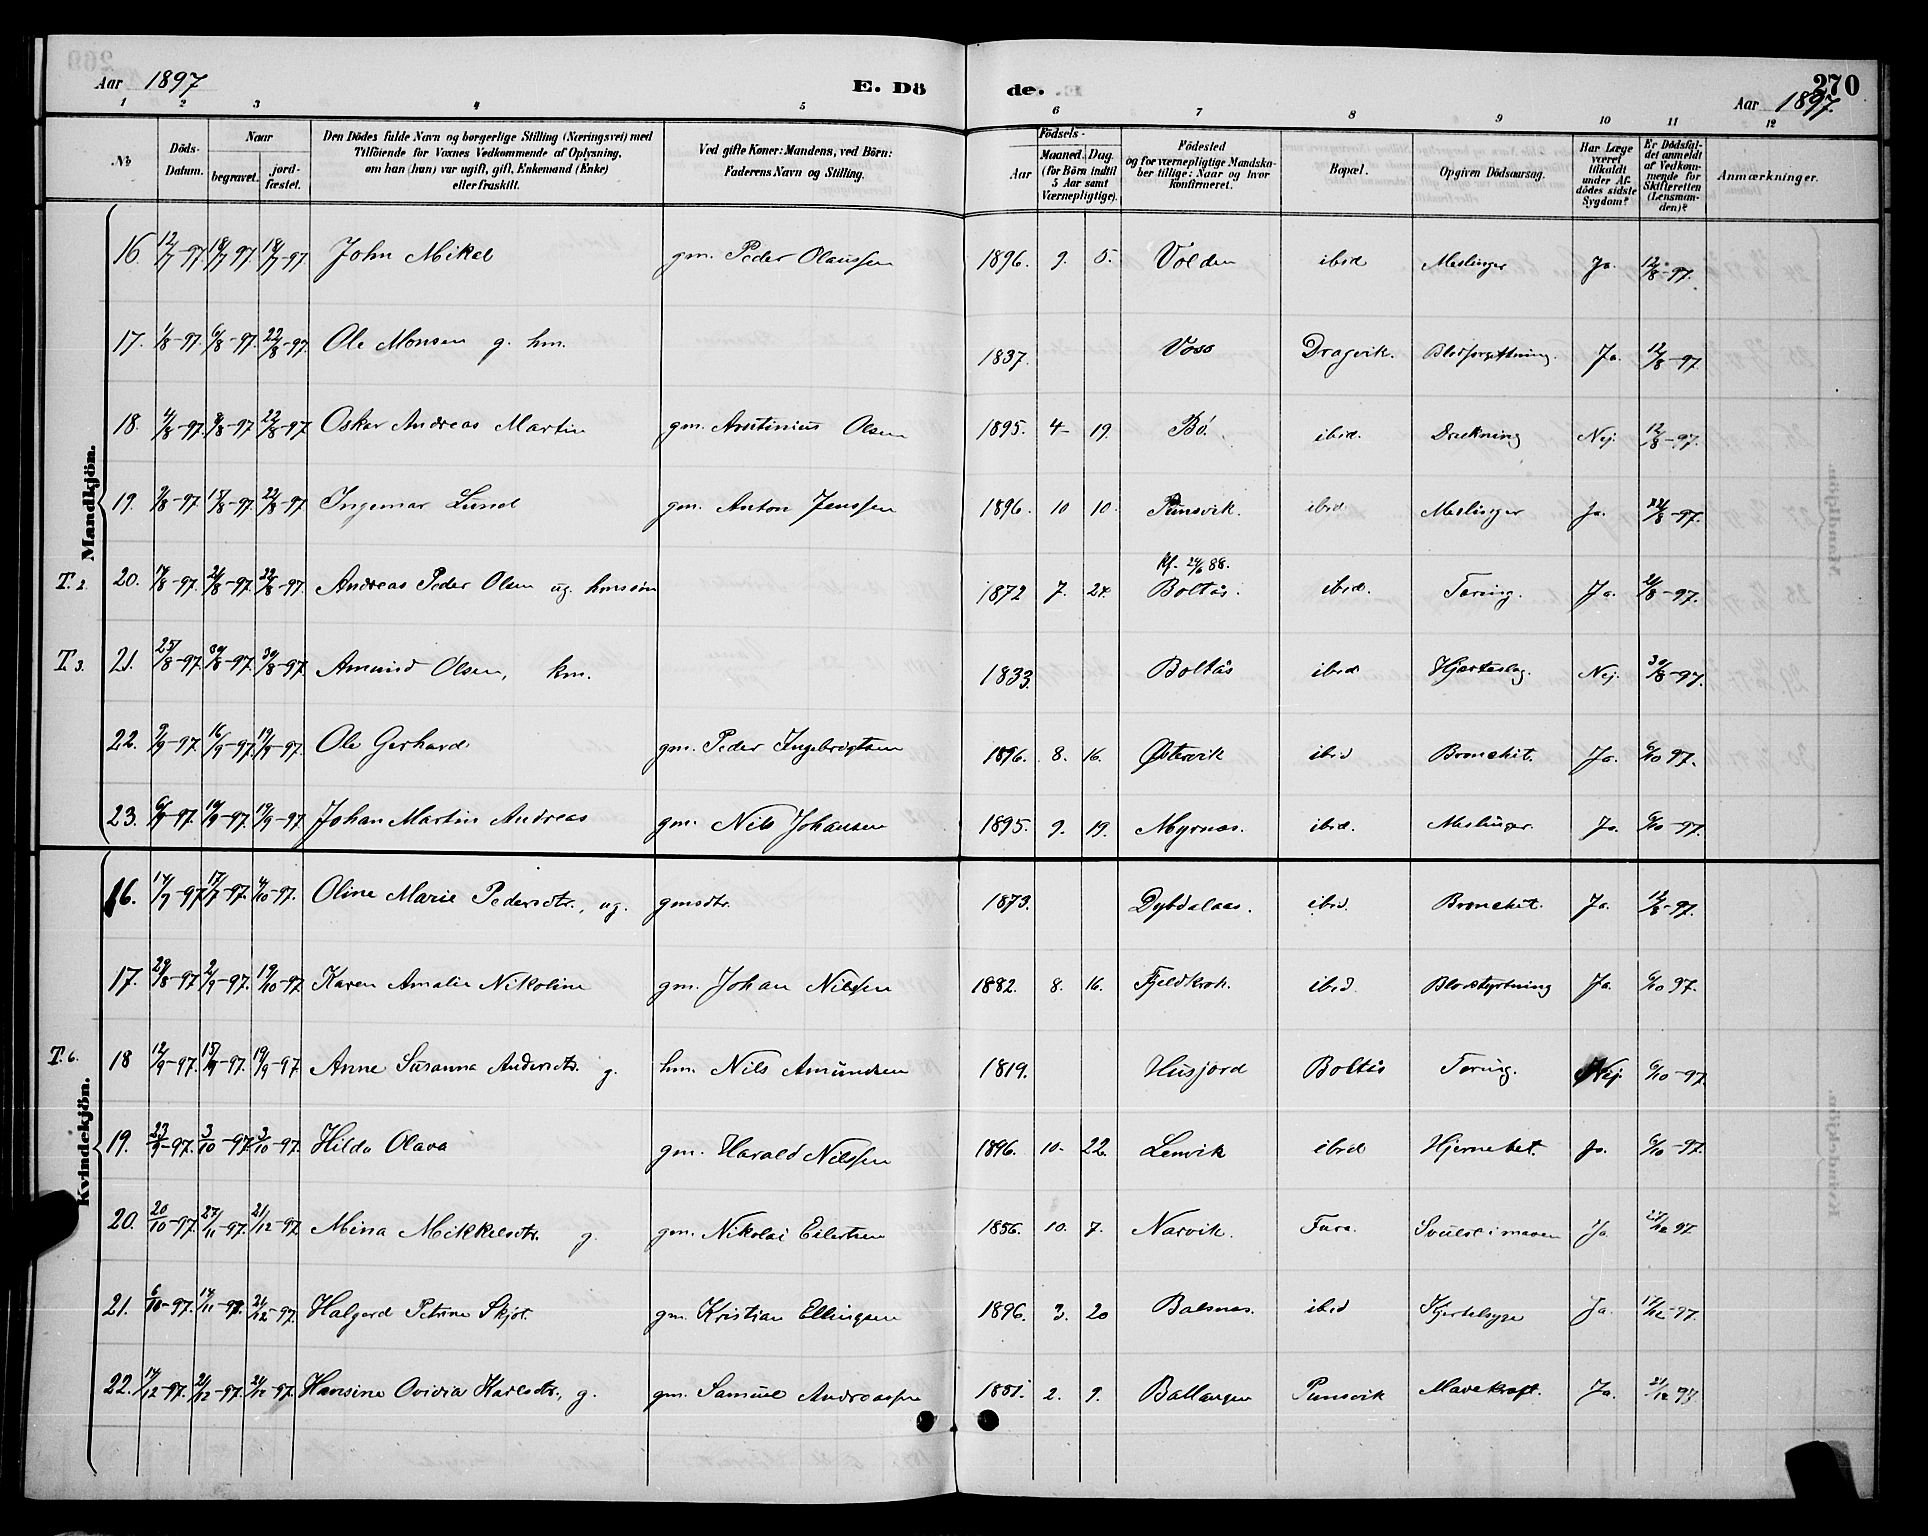 Aar 1897 E. Döde. Aar 1897. 270
1 2 3 4 5 6 7 8 9 10 11 12
No Döds-Datum. Naar begravet. jordfæstet. Den Dödes fulde Navn og borgerlige Stilling (Næringsvei) med Tilföiende for Voxnes Vedkommende af Oplysning, om han (hun) var ugift, gift, Enkemand (Enke) eller fraskilt. Ved gifte Koner: Mandens, ved Börn: Faderens Navn og Stilling. Födsels- Aar Maaned. Dag. (for Börn indtil 5 Aar samt Værnepligtige). Födested og for værnepligtige Mandskaber tillige: Naar og hvor konfirmeret. Bopæl. Opgiven Dödsaarsag. Har Læge været tilkaldt under Afdödes sidste Sygdom? Er Dödsfaldet anmeldt af Vedkommende for Skifteretten (Lensmanden)? Anmærkninger.
Mandkjön.
16. 12/7-97 18/7 97 18/7-97. John Mikal gm. Peder Olaussen 1896. 9. 5. Volden ibid Meslinger Ja. 12/8-97.
17. 1/8-97. 6/8-97. 22/8-97. Ole Monsen g. hm. 1837. Voss Dragvik. Blodforgiftning. Ja. 12/8-97.
18. 4/8-97. 8/8-97 22/8-97. Oskar Andreas Martin gm. Arntinius Olsen 1895. 4 19. Bö. ibid. Drukning Nej. 12/8-97.
19. 9/8-97. 15/8-97. 22/8-97. Ingemar Lund gm. Anton Jenssen 1896. 10 10. Punsvik. ibid Meslinger Ja. 22/8-97.
T. 2. 20. 17/8-97. 21/8-97. 22/8-97. Andreas Peder Olsen ug. hmssön 1872 7. 24. Kf. 24/6 88. Boltås. ibid. Tæring. Ja. 21/8-97.
T. 3. 21. 25/8-97. 30/8-97. 30/8-97. Amund Olsen, km. 1833. Boltås ibid Hjerteslag. Nej. 30/8-97.
22. 9/9-97. 16/9-97. 19/9-97. Ole Gerhard gm. Peder Ingebrigtsen 1896. 8. 16. Østervik ibid Bronchit. Ja. 6/10 97.
23. 6/9-97. 10/9-97. 19/9-97. Johan Martin Andreas gm. Nils Johansen 1895. 9. 19. Myrnes. ibid. Meslinger. Ja. 6/10-97.
Kvindekjön.
16. 14/7-97 17/7-97. 4/10-97. Oline Marie Pedersdtr., ug. gmsdtr. 1873. Dybdalaas. ibid. Bronchit. Ja. 12/8-97.
17. 29/8-97 2/9-97. 19/10-97. Karen Amalie Nikoline gm. Johan Nilssen 1882. 8. 16. Fjeldkroh. ibid Blodstyrtning Ja. 6/10 97.
T. 6. 18 12/9-97. 15/9-97. 19/9-97 Anne Susanna Andersdtr. g. hm. Nils Amundsen 1819. Husjord Boltås Tæring. Nej. 6/10-97.
19. 23/9-97. 3/10-97. 3/10-97. Hilda Olava gm. Harald Nilssen 1896. 10. 22. Lenvik ibid Hjernebet. Ja. 6/10-97.
20. 20/10-97. 27/11-97. 21/12-97 Mina Mikkelsdtr. g. gm. Nikolai Eilertsen 1856. 10. 7. Narvik. Furu. Svulst i maven Ja. 97.
21. 6/10-97. 14/11-97. 21/12-97. Halgerd Petrine Skjöt. gm. Kristian Ellingsen 1896. 3. 20 Balsnes. ibid Kjertelsyge Ja. 17/12-97.
22. 17/12-97. 21/12-97. 21/12-97. Hansine Ovidia Karlsdtr., g. gm. Samuel Andreassen 1851. 2. 9. Ballangen Punsvik Mavekræft. Ja. 21/12 97.